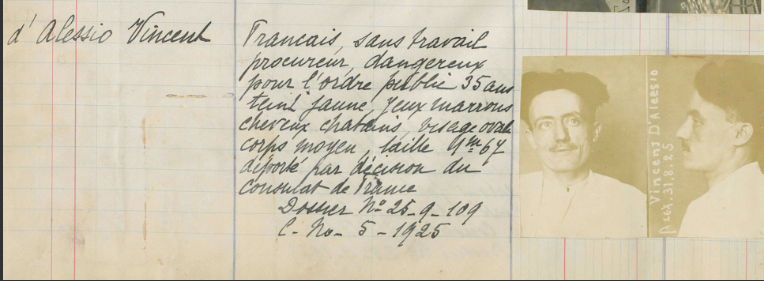 d' Alessio Vincent
Francais, sans travail
procureur, dangereux
pour l'ordre public 35 ans
teint jaune, yeux marrons
cheveux chatains, visage ovale
corps moyen, taille 1m67
déporté par décision du
Consulat de France
Dossier No 25-9-109
C-No-5-1925
Vincent D'Alessio
Alex. 31.8.25